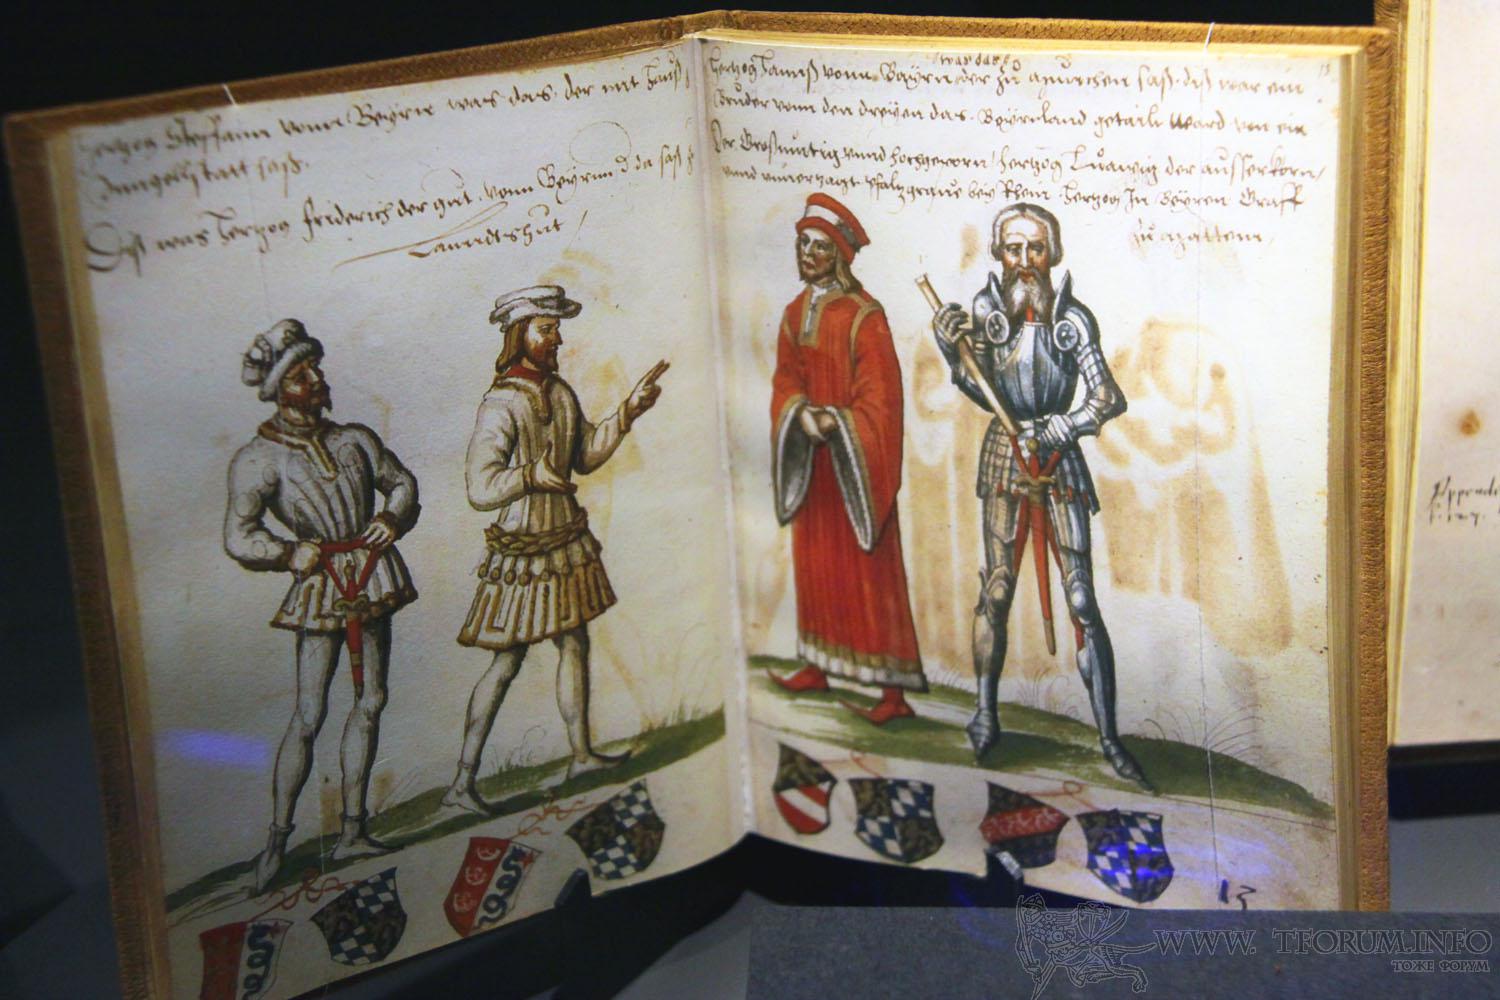 Hertzog Steffann vonn Beyrn was das der mit Hauß
Inngellstatt saß.
Diß was Hertzog friderich der
vonn Beyrnn d da saß
Lanndtshut
wardar
13
Hertzog Hanns vonn Bayrn der zu münchen saß diß war ein
Bruder vonn den dreyen das Beyrnland getailt ward von ein
Der Großmütig unnd hochgeporn Hertzog Ludwig der ausserkorn
unnd unverzagt pfalzgraue bey Rhein Hertzog In Beyren Graff
zu
13
WWW. TFORUM.INFO
ТОЖЕ ФОРУМ